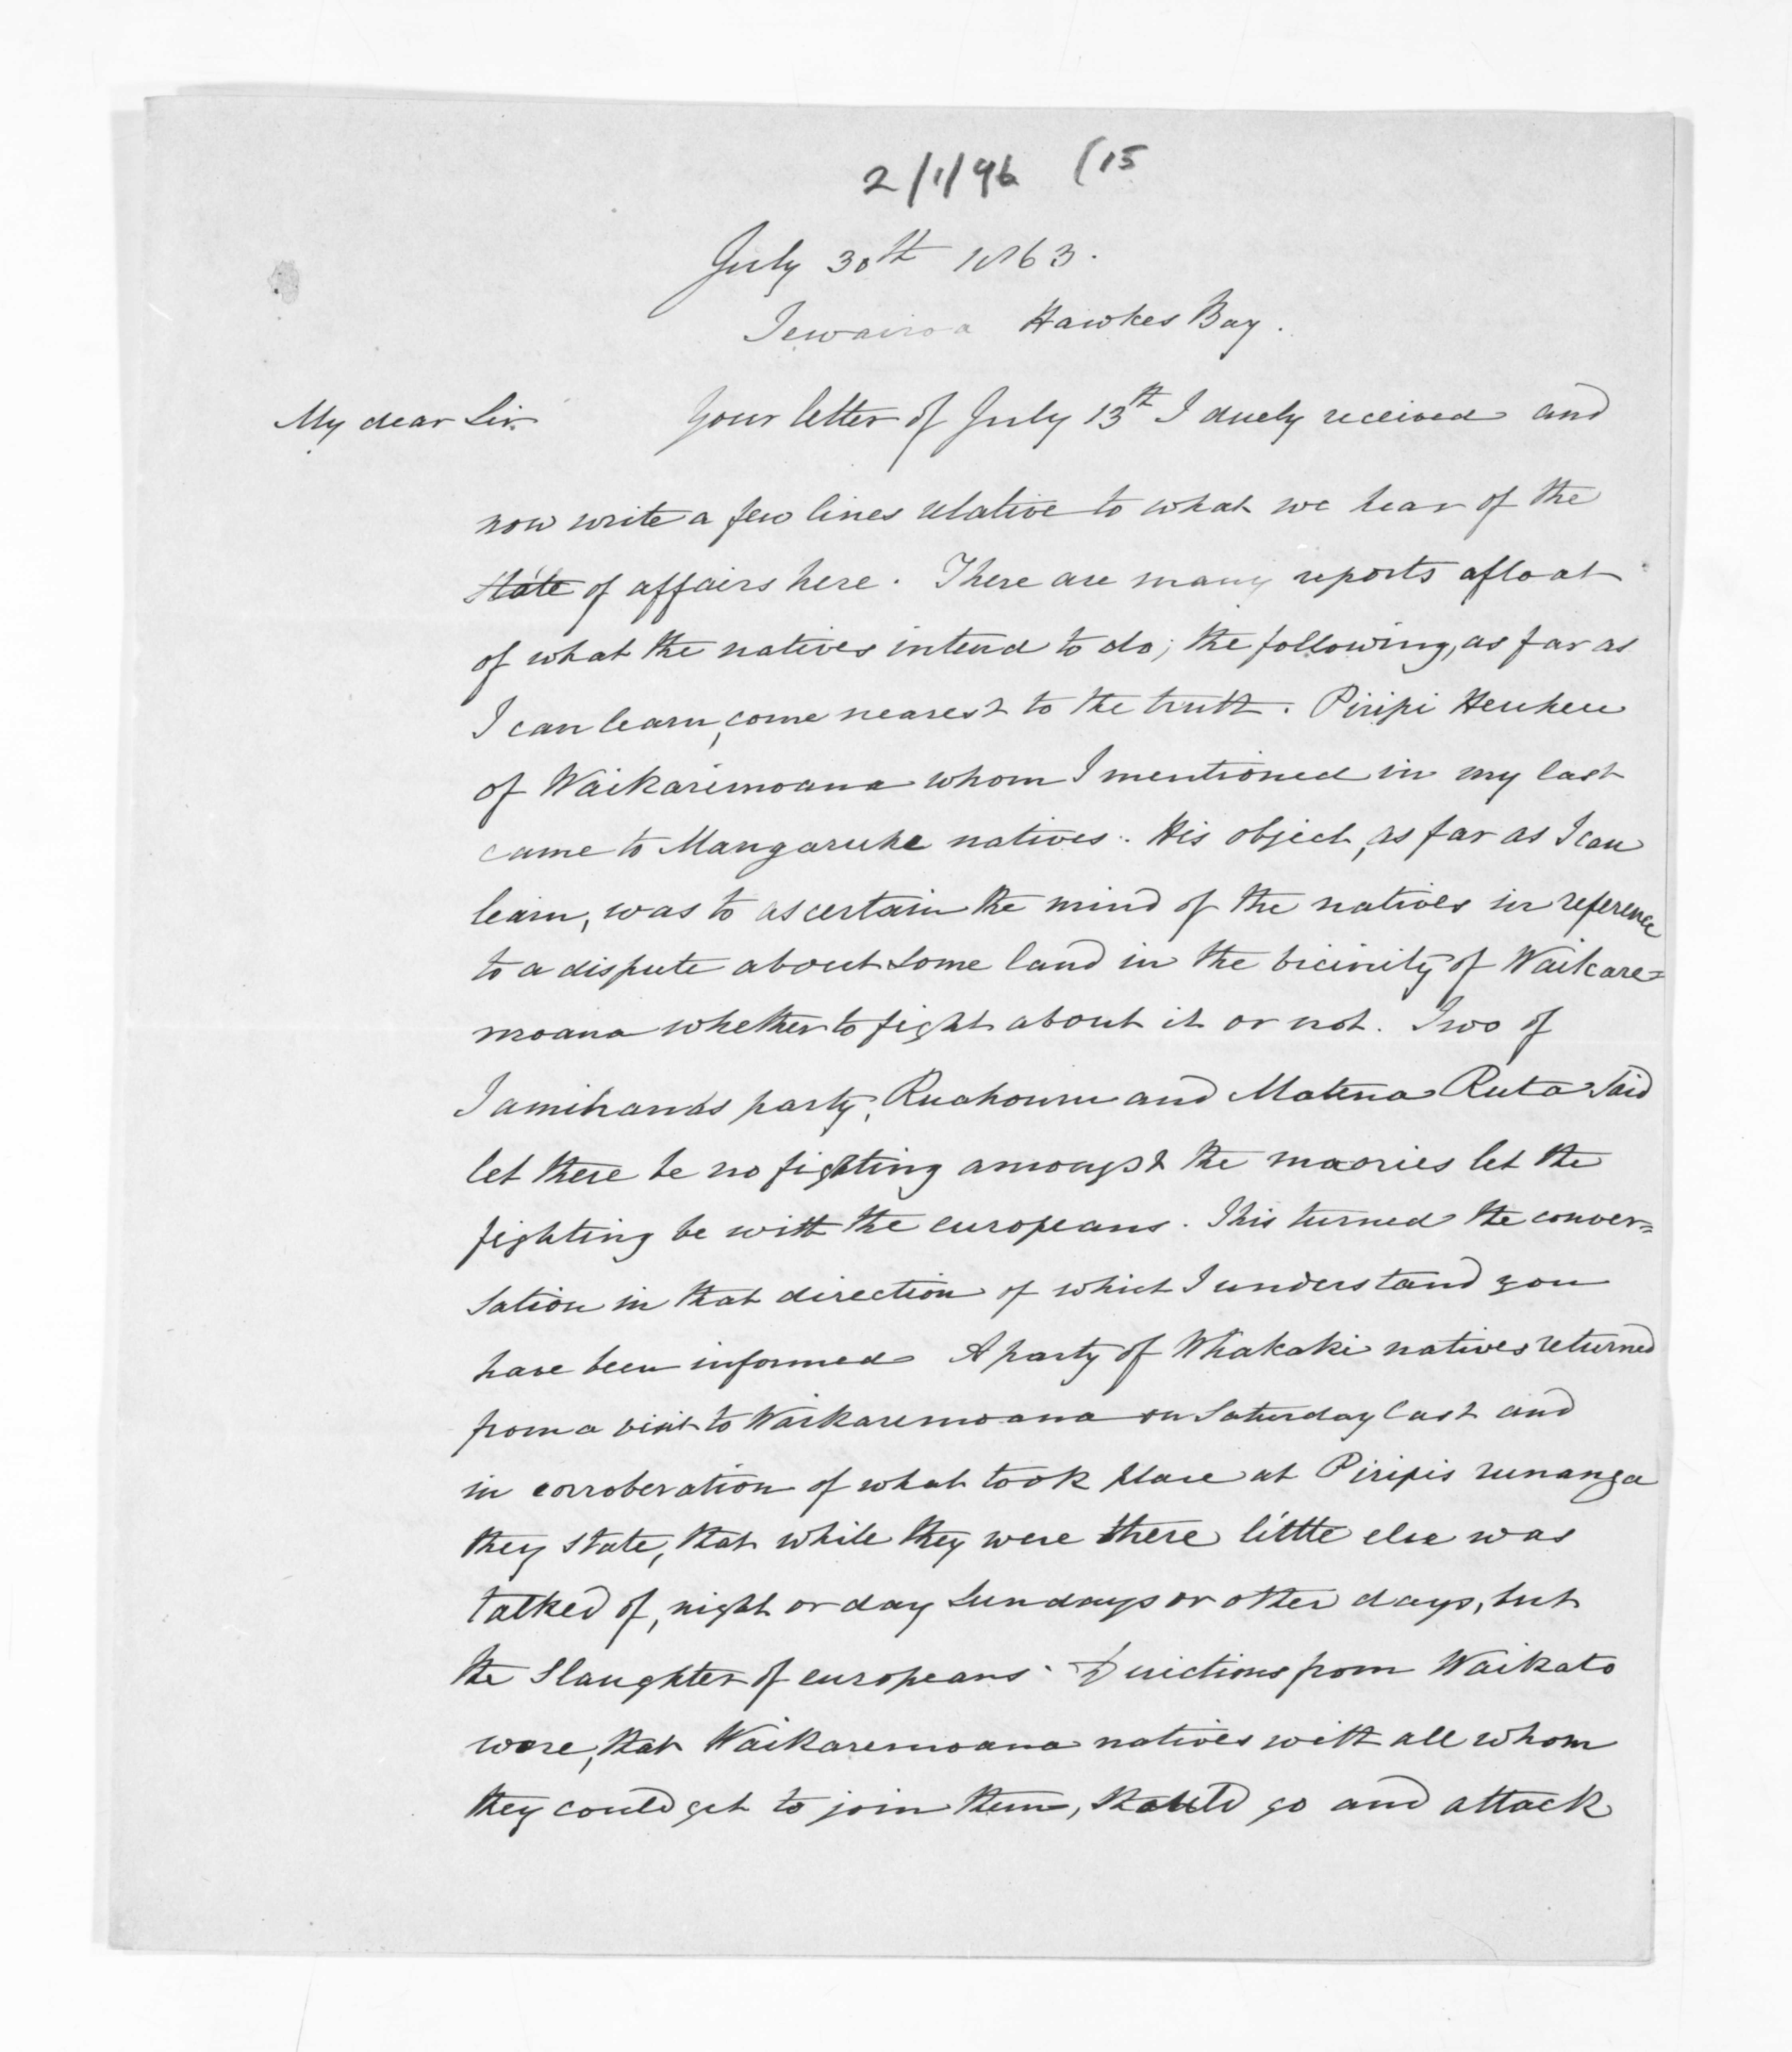 2/1/96 (15
July 30th 1863.
Tewairoa Hawkes Bay.
My dear Sir. Your letter of July 13th I duely received and
now write a few lines relative to what we hear of the
state of affairs here. There are many reports afloat
of what the natives intend to do; the following, as far as
I can learn, come nearest to the truth. Piripi Heuheu
of Waikarimoana whom I mentioned in my last
came to Mangaruhe natives. His object, as far as I can
learn, was to ascertain the mind of the natives in reference
to a dispute about some land in the vicinity of Waikare=
moana whether to fight about it or not. Two of
Tamihanas party, and Matena Ruta said
let there be no fighting amongst the maories let the
fighting be with the europeans. This turned the conver=
sation in that direction of which I understand you
have been informed A party of Whakaki natives returned
from a visit to Waikaremoana on Saturday last and
in corroberation of what took place at Piripis runanga
they state, that while they were there little else was
talked of, night or day Sundays or other days, but
the Slaughter of europeans. Directions from Waikato
were, that Waikaremoana natives with all whom
they could get to join them, should go and attack